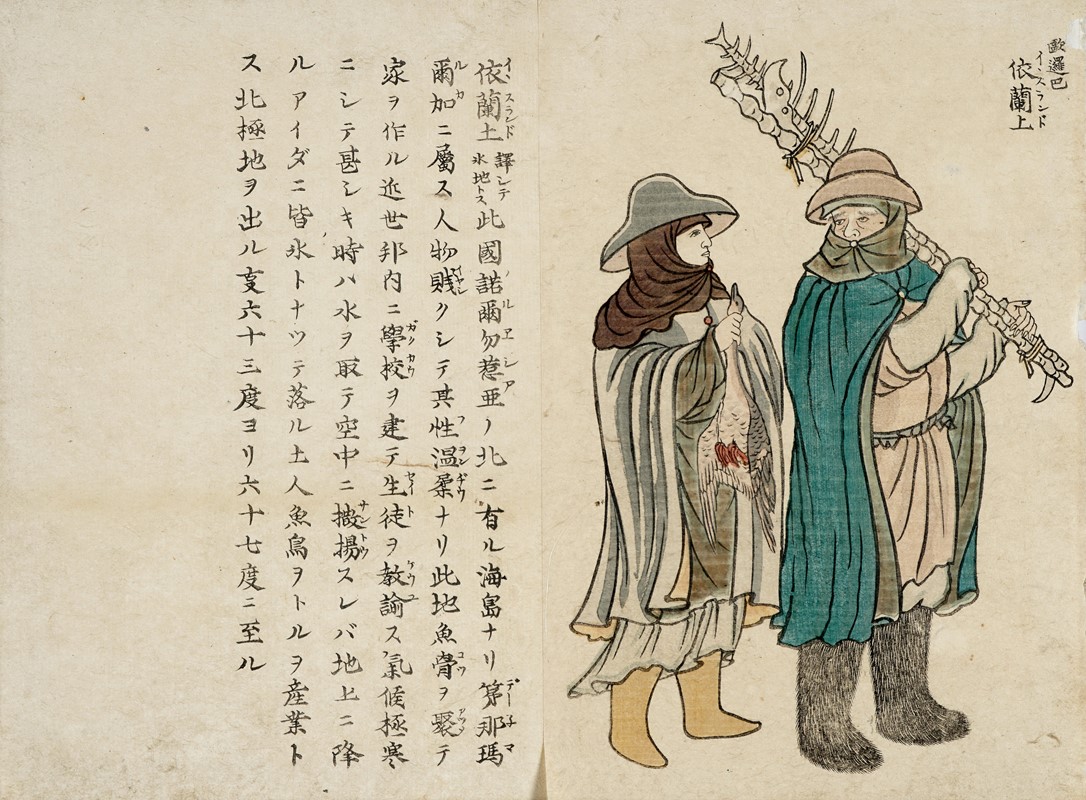 歐邏巴
イヽスランド
依蘭土
依蘭土 譯シテ氷地トス 此國諾爾勿惹亜ノ北ニ有ル海島ナリ 第那瑪
爾加ニ屬ス人物賎クシテ其性温柔ナリ此地魚骨ヲ聚テ
家ヲ作ル近世邦内ニ學校ヲ建テ生徒ヲ教諭ス氣候極寒
ニシテ甚シキ時ハ水ヲ取テ空中ニ撒揚スレバ地上ニ降
ルアイダニ皆氷トナツテ落ル土人魚鳥ヲトルヲ産業ト
ス北極地ヲ出ル叓六十三度ヨリ六十七度ニ至ル